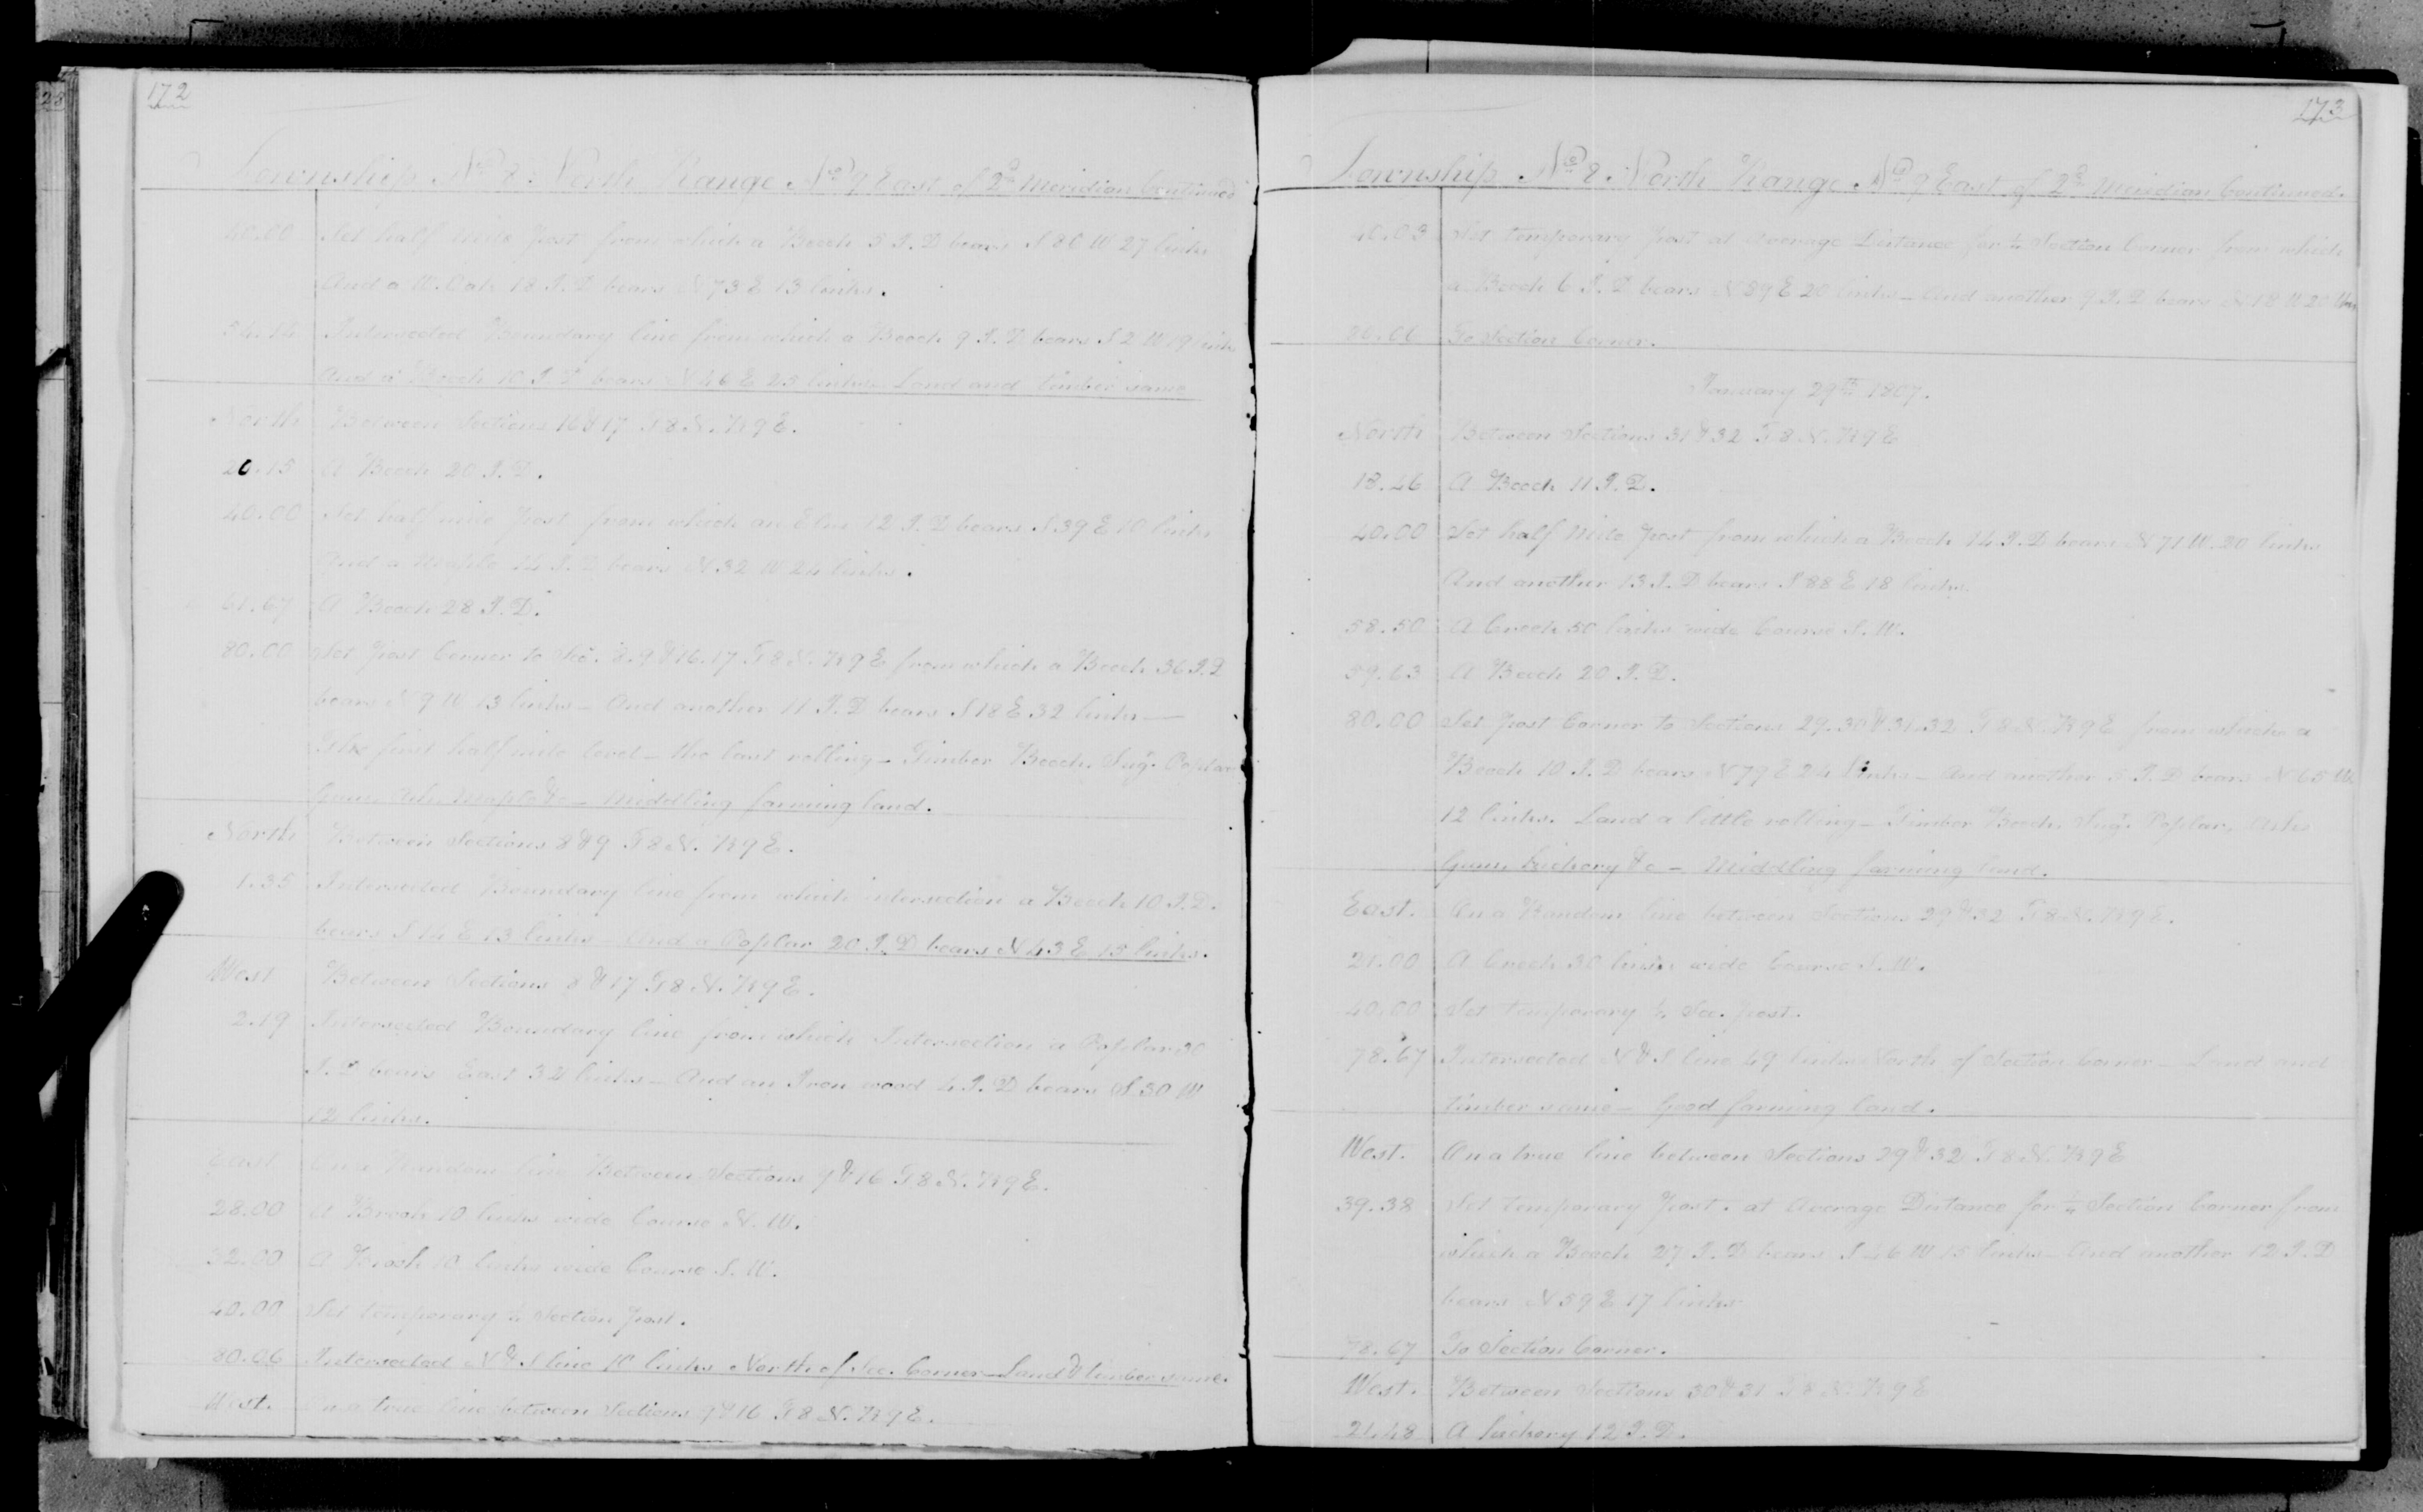 172
Township No 8. North Range No 9 East of 2d Meridian Continued
40.00 Set half mile post from which a Beech 5 I.D bears S 80 W 27 links
And a W. Oak 18 I.D bears N 73 E 13 links.
Intersected Boundary line from which a Beech 9 I.D bears S 2 W 19 links
And a Beech 10 I.D bears N 46 E 25 links. Land and timber same
North Between Sections 16 & 17 T 8 N. R 9 E.
20.15 A Beech 20 I.D.
40.00 Set half mile post from which an Elm 12 I.D bears S 39 E 10 links
And a Maple 14 I.D bears N 32 W 24 links.
61.67 A Beech 28 I.D.
80.00 Set post Corner to Sec. 8.9 & 16.17 T 8 N. R 9 E from which a Beech 36 I.D
bears N 9 W 13 links – And another 11 I.D bears S 18 E 32 links —
The first half mile level – the last rolling – Timber Beech, Sugr. Poplar
Gum, Ash, Maple &c – Middling farming land.
North Between Sections 8 & 9 T 8 N. R 9 E.
1.35 Intersected Boundary line from which intersection a Beech 10 I.D.
bears S 14 E 13 links – And a Poplar 20 I.D bears N 43 E 15 links.
West Between Sections 8 & 17 T 8 N. R 9 E.
2.19 Intersected Boundary line from which Intersection a Poplar 30
I.D bears East 32 links – And an Iron wood 4 I.D bears S 30 W
12 links.
East On a Random line Between Sections 9 & 16 T 8 N. R 9 E.
28.00 A Brook 10 links wide Course N. W.
32.00 A Brook 10 links wide Course S. W.
40.00 Set temporary ¼ Section post.
80.06 Intersected N & S line 10 links North of Sec. Corner – Land & timber same.
West. On a true line between Sections 9 & 16 T 8 N. R 9 E.
173
Township No 8. North Range No 9 East of 2d Meridian Continued.
40.03 Set temporary post at average Distance for ¼ Section Corner from which
a Beech 6 I.D bears N 89 E 20 links – And another 9 I.D bears N 18 W 20 links
80.06 To Section Corner.
January 29th 1807.
North Between Sections 31 & 32 T 8 N. R 9 E
18.46 A Beech 11 I.D.
40.00 Set half Mile post from which a Beech 14 I.D bears N 71 W. 30 links
And another 13 I.D bears S 88 E 18 links.
58.50 A Creek 50 links wide Course S. W.
59.63 A Beech 20 I.D.
80.00 Set post Corner to Sections 29.30 & 31.32 T 8 N. R 9 E from which a
Beech 10 I.D bears N 79 E 24 links – And another 5 I.D bears N 65 W.
12 links. Land a little rolling – Timber Beech, Sugr. Poplar, Ash
Gum, hickory &c – Middling farming land.
East. On a Random line between Sections 29 & 32 T 8 N. R 9 E.
21.00 A Creek 30 links wide Course S. W.
40.00 Set temporary ¼ Sec. post.
78.67 Intersected N & S line 49 links North of Section Corner – Land and
timber same – Good farming land.
West. On a true line between Sections 29 & 32 T 8 N. R 9 E
39.38 Set temporary post. at Average Distance for ¼ Section Corner from
which a Beech 27 I.D bears S 46 W 15 links – And another 12 I.D
bears N 59 E 17 links
78.67 To Section Corner.
West. Between Sections 30 & 31 T 8 N. R 9 E
21.48 A hickory 12 I.D.